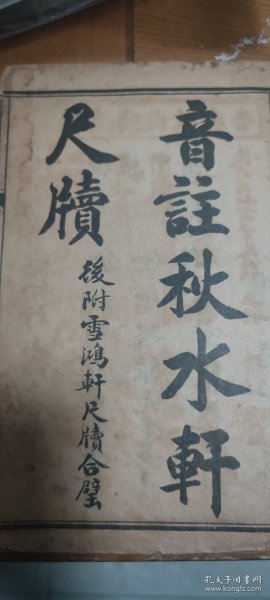 音註秋水軒
尺牘
後附雪鴻軒尺牘合璧
孔夫子旧书网